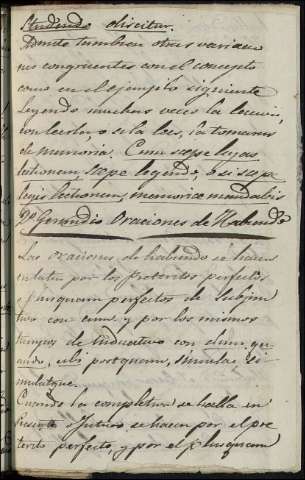 Studendo discitur.
Donde tambien otras variacio
nes congruentes con el concepto
como en el ejemplo siguiente
Leyendo muchas veces la leccion,
con leerla, o si la lees, la tomaras
de memoria. Cum sæpe legas
lectionem, sæpe legendo, o si sæpe
legis lectionem, memoriæ mandabis
Gerundio Oraciones de Habiendo
Las oraciones de habiendo se hacen
en latin por los preteritos perfectos
y plusquam perfectos de subjun
tivo con cum, y por los mismos
tiempos de indicativo con dum, qu
ando, ubi, postquam, simulac si
mulatque.
Cuando la completiva se halla en
Presente o futuro se hacen por el pre
terito perfecto, y por el plusquam